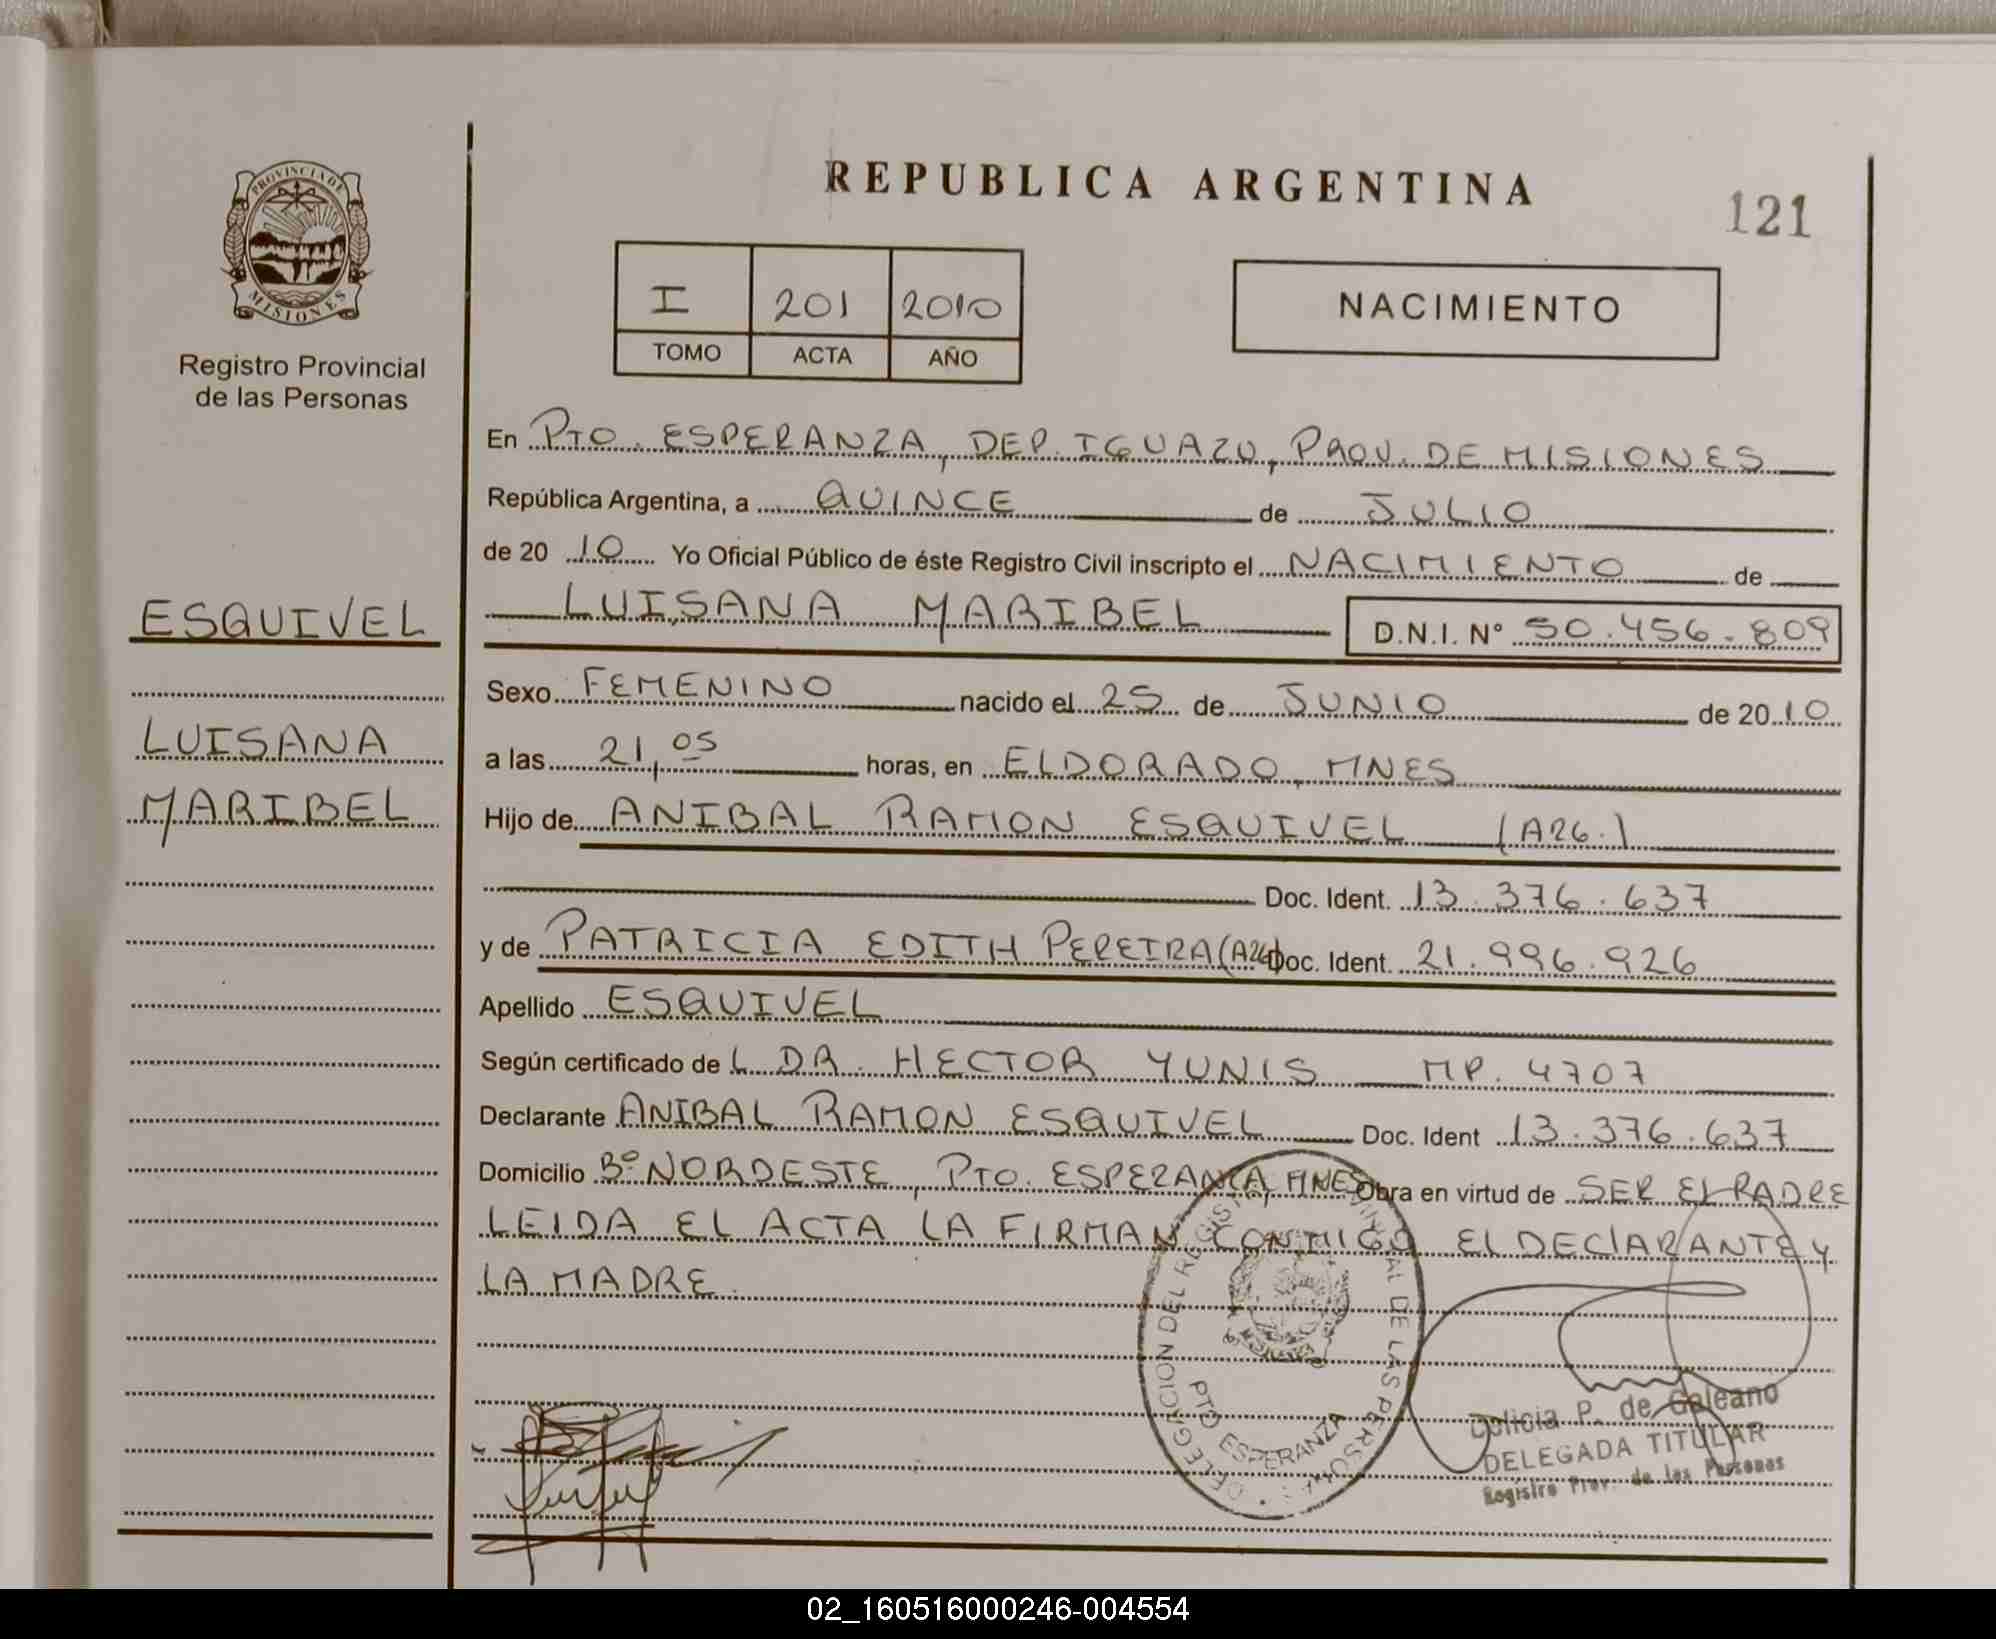 PROVINCIA DE
MISIONES
Registro Provincial
de las Personas
ESQUIVEL
LUISANA
MARIBEL
REPUBLICA ARGENTINA
121
I 201 2010
TOMO ACTA AÑO
NACIMIENTO
En PTO. ESPERANZA, DEP. IGUAZU, PROV. DE MISIONES
República Argentina, a QUINCE de JULIO
de 20 10 Yo Oficial Público de éste Registro Civil inscripto el NACIMIENTO de
LUISANA MARIBEL D.N.I. N° 50.456.809
Sexo FEMENINO nacido el 25 de JUNIO de 20 10
a las 21,05 horas, en ELDORADO, MNES
Hijo de ANIBAL RAMON ESQUIVEL (ARG.)
Doc. Ident. 13.376.637
y de PATRICIA EDITH PEREIRA (ARG) Doc. Ident. 21.996.926
Apellido ESQUIVEL
Según certificado de L DR. HECTOR YUNIS MP. 4707
Declarante ANIBAL RAMON ESQUIVEL Doc. Ident 13.376.637
Domicilio B° NORDESTE, PTO. ESPERANZA, MNES Obra en virtud de SER EL PADRE
LEIDA EL ACTA LA FIRMAN CONMIGO EL DECLARANTE Y
LA MADRE.
DELEGACION DEL REGISTRO PROVINCIAL DE LAS PERSONAS
PTO ESPERANZA
P. de Galeano
DELEGADA TITULAR
Registro Prov. de las Personas
02_160516000246-004554